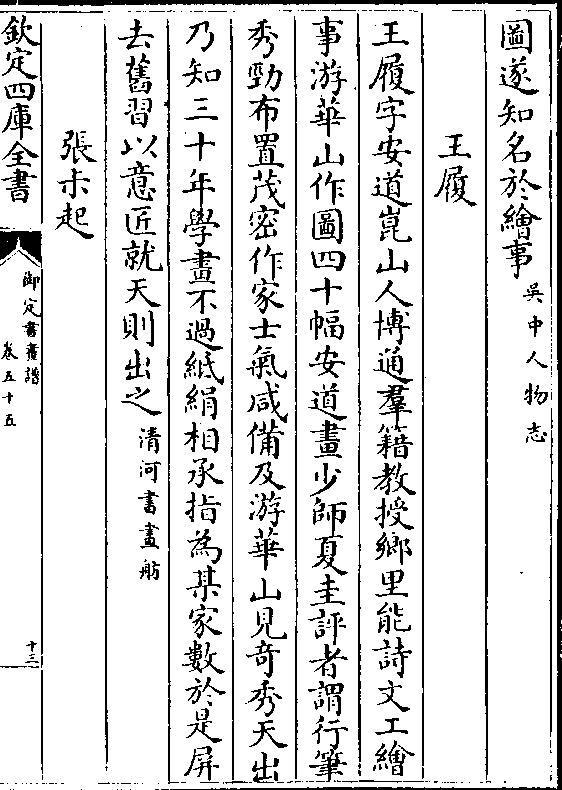 圖遂知名於繪事吳中人物志
王履
王履字安道崑山人博通羣籍教授鄉里能詩文工繪
事游華山作圖四十幅安道畫少師夏圭評者謂行筆
秀勁布置茂密作家士氣咸備及游華山見奇秀天出
乃知三十年學畫不過紙絹相承指為某家數於是屏
去舊習以意匠就天則出之清河書畫舫
張未起
欽定四庫全書
御定書畫譜
卷五十五
十三